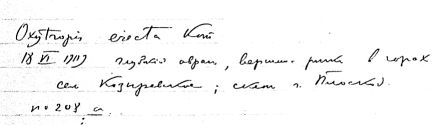 Oxytropis erecta Kom
18 VI 1909 глубокий овраг, вершина в горах
сел. Козыревское; скат г. Плоской.
no 208 a.